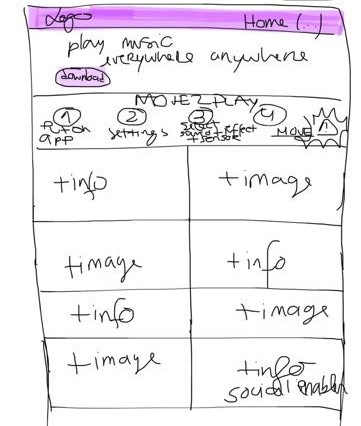 Logo Home (...)
play music
everywhere anywhere
download
MOVE2PLAY
1 2 3 4
put on app settings select sound effect + sensor MOVE !
+info +image
+image +info
+info +image
+image +info
social enable